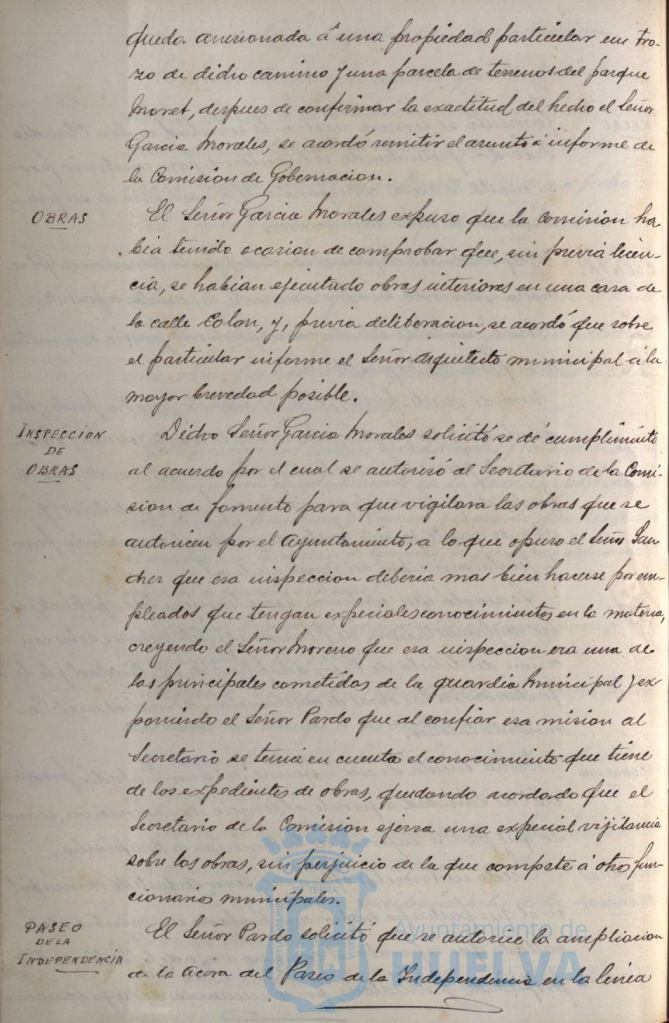 queda anexionada á una propiedad particular un tro-
zo de dicho camino y una parcela de terrenos del parque
Moret, despues de confirmar la exactitud del hecho el Señor
Garcia Morales, se acordó remitir el asunto á informe de
la Comision de Gobernacion.
OBRAS
El Señor Garcia Morales expuso que la Comision ha-
bia tenido ocasion de comprobar que, sin previa licen-
cia, se habian ejecutado obras interiores en una casa de
la calle Colon, y, previa deliberacion, se acordó que sobre
el particular informe el Señor Arquitecto municipal á la
mayor brevedad posible.
INSPECCION
DE
OBRAS
Dicho Señor Garcia Morales solicitó se dé cumplimiento
al acuerdo por el cual se autorizó al Secretario de la Comi-
sion de fomento para que vigilara las obras que se
autoricen por el Ayuntamiento, a lo que opuso el Señor San-
chez que esa inspeccion deberia mas bien hacerse por em-
pleados que tengan especiales conocimientos en la materia,
creyendo el Señor Moreno que esa inspeccion era una de
las principales cometidas de la guardia Municipal y ex-
poniendo el Señor Pardo que al confiar esa mision al
Secretario se tenia en cuenta el conocimiento que tiene
de los expedientes de obras, quedando acordado que el
Secretario de la Comision ejerza una especial vijilancia
sobre las obras, sin perjuicio de la que compete á otros fun-
cionarios municipales.
PASEO
DE LA
INDEPENDENCIA
El Señor Pardo solicitó que se autorice la ampliacion
de la acera del Paseo de la Independencia en la linea
Ayuntamiento de
HUELVA